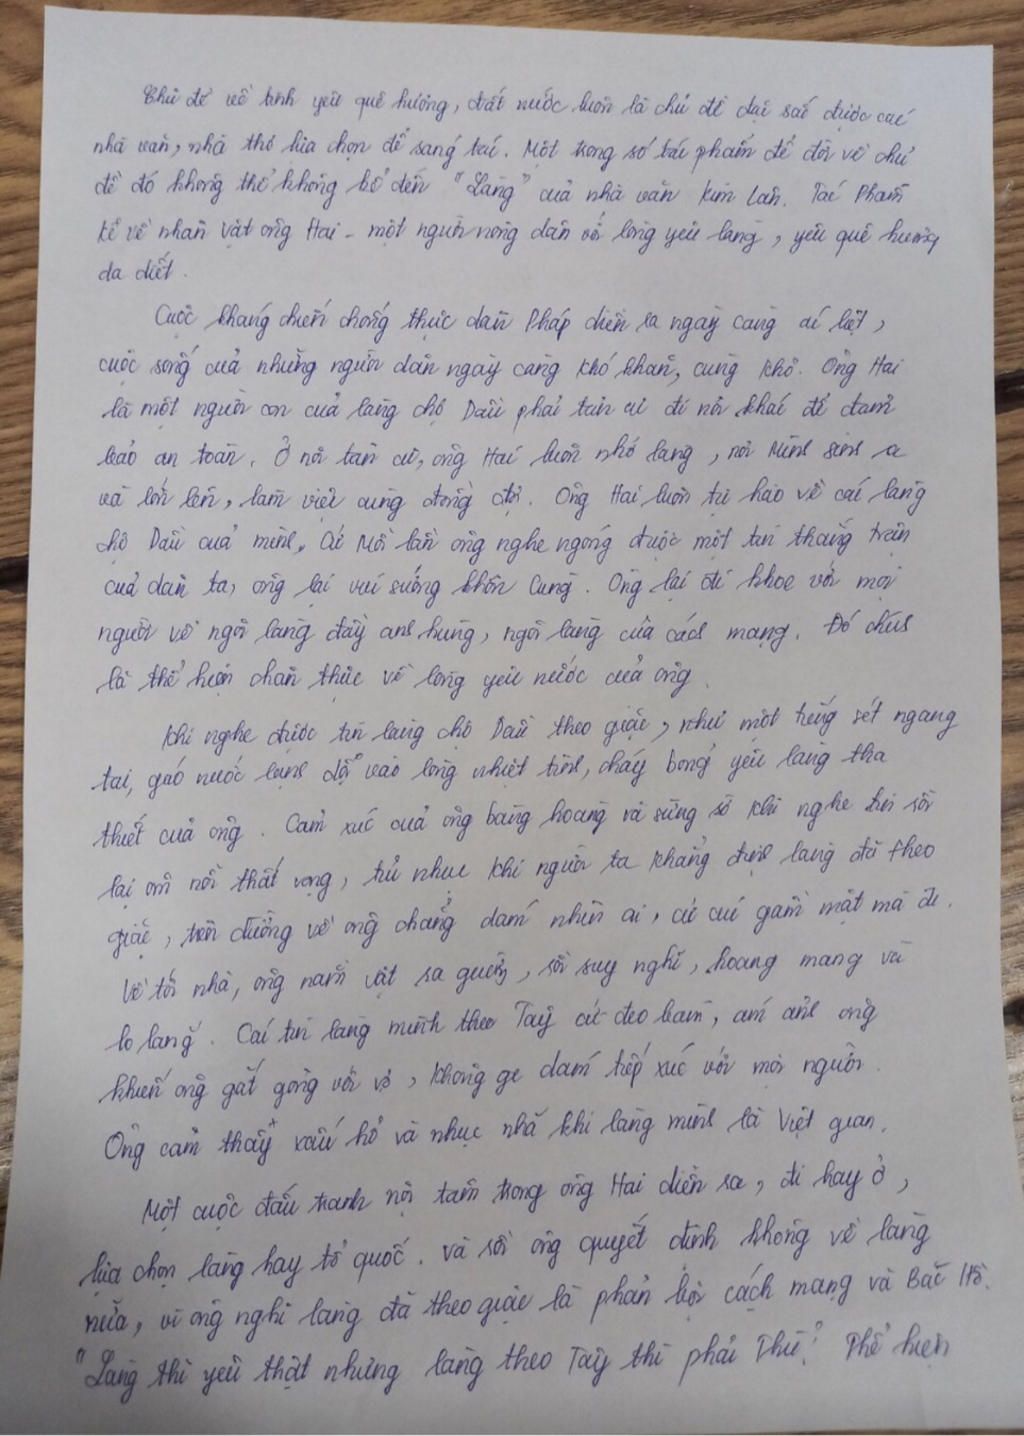 Chủ đề về tình yêu quê hương, đất nước luôn là chủ đề đại sắc được các
nhà văn, nhà thơ lựa chọn để sáng tác. Một trong số tác phẩm để đời về chủ
đề đó không thể không kể đến "Làng" của nhà văn Kim Lân. Tác Phẩm
kể về nhân vật ông Hai - một người nông dân với lòng yêu làng, yêu quê hương
da diết.
Cuộc kháng chiến chống thực dân Pháp diễn ra ngày càng ác liệt,
cuộc sống của những người dân ngày càng khó khăn, cùng khổ. Ông Hai
là một người con của làng chợ Dầu phải tản cư đi nơi khác để đảm
bảo an toàn. Ở nơi tản cư, ông Hai luôn nhớ làng, nơi Mình sinh ra
và lớn lên, làm việc cùng đồng đội. Ông Hai luôn tự hào về cái làng
chợ Dầu của mình, Cứ Mỗi lần ông nghe ngóng được một tin thắng trận
của dân ta, ông lại vui sướng khôn cùng. Ông lại đi khoe với mọi
người về ngôi làng đầy anh hùng, ngôi làng của cách mạng. Đó chính
là thể hiện chân thực về lòng yêu nước của ông.
Khi nghe được tin làng chợ Dầu theo giặc, như một tiếng sét ngang
tai, gáo nước lạnh dội vào lòng nhiệt tình, cháy bỏng yêu làng tha
thiết của ông. Cảm xúc của ông bàng hoàng và sững sờ khi nghe tin rồi
lại ôm nỗi thất vọng, tủi nhục khi người ta khẳng định làng đã theo
giặc, trên đường về ông chẳng dám nhìn ai, cứ cúi gằm mặt mà đi.
Về tới nhà, ông nằm vật ra giường, rồi suy nghĩ, hoang mang và
lo lắng. Cái tin làng mình theo Tây cứ đeo bám, ám ảnh ông
khiến ông gắt gỏng với vợ, không ge dám tiếp xúc với mọi người.
Ông cảm thấy xấu hổ và nhục nhã khi làng mình là Việt gian.
Một cuộc đấu tranh nội tâm trong ông Hai diễn ra, đi hay ở,
lựa chọn làng hay tổ quốc. Và rồi ông quyết định không về làng
nữa, vì ông nghĩ làng đã theo giặc là phản bội cách mạng và Bác Hồ.
"Làng thì yêu thật nhưng làng theo Tây thì phải Thù". Thể hiện